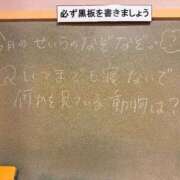 必ず黒板を書きましょう
今月のせいうちのなぞなぞ
Q.いつまでも寝ないで
何かを見ている動物は?